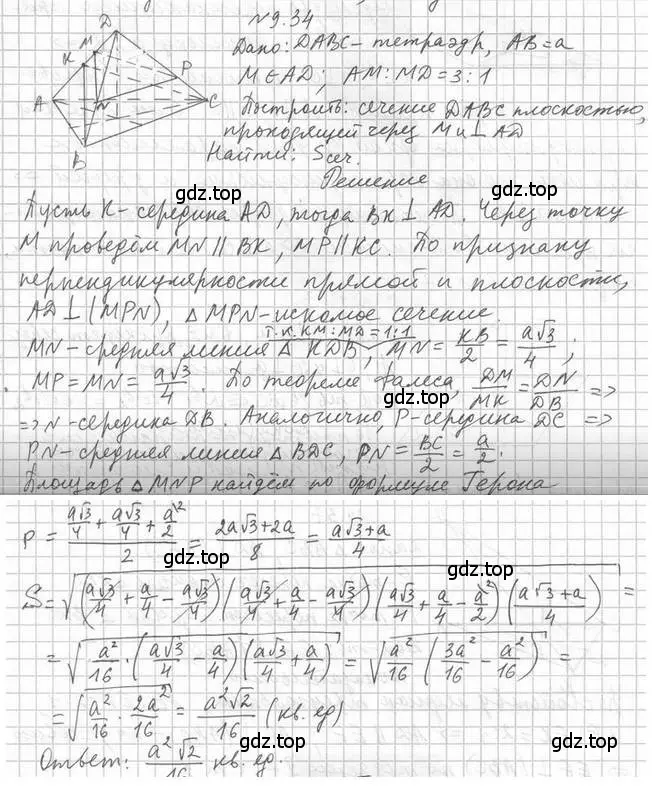 N 9.34
Дано: DABC - тетраэдр, AB = a
M ∈ AD; AM : MD = 3 : 1
Построить: сечение DABC плоскостью,
проходящей через M и ⊥ AD
Найти: Sсеч.
Решение
D
M
K
P
A
N
C
B
gdz.top
Пусть K - середина AD, тогда BK ⊥ AD. Через точку
M проведём MN || BK, MP || KC. По признаку
перпендикулярности прямой и плоскости,
gdz.top
AD ⊥ (MPN), △ MPN - искомое сечение.
т.к. KM : MD = 1:1
MN - средняя линия △ KDB, MN = KB/2 = a√3/4 ;
MP = MN = a√3/4 . По теореме Фалеса, DM/MK = DN/DB =>
gdz.top
=> N - середина DB. Аналогично, P - середина DC =>
PN - средняя линия △ BDC, PN = BC/2 = a/2.
gdz.top
Площадь △ MNP найдём по формуле Герона
p = (a√3/4 + a√3/4 + a/2)/2 = (2a√3 + 2a)/8 = (a√3 + a)/4
gdz.top
S = √((a√3/4 + a/4 - a√3/4)(a√3/4 + a/4 - a√3/4)(a√3/4 + a/4 - a/2)((a√3 + a)/4)) =
gdz.top
= √(a²/16 · (a√3/4 - a/4)(a√3/4 + a/4)) = √(a²/16 (3a²/16 - a²/16)) =
gdz.top
= √(a²/16 · 2a²/16) = a²√2/16 (кв. ед)
gdz.top
Ответ: a²√2/16 кв. ед.
gdz.top